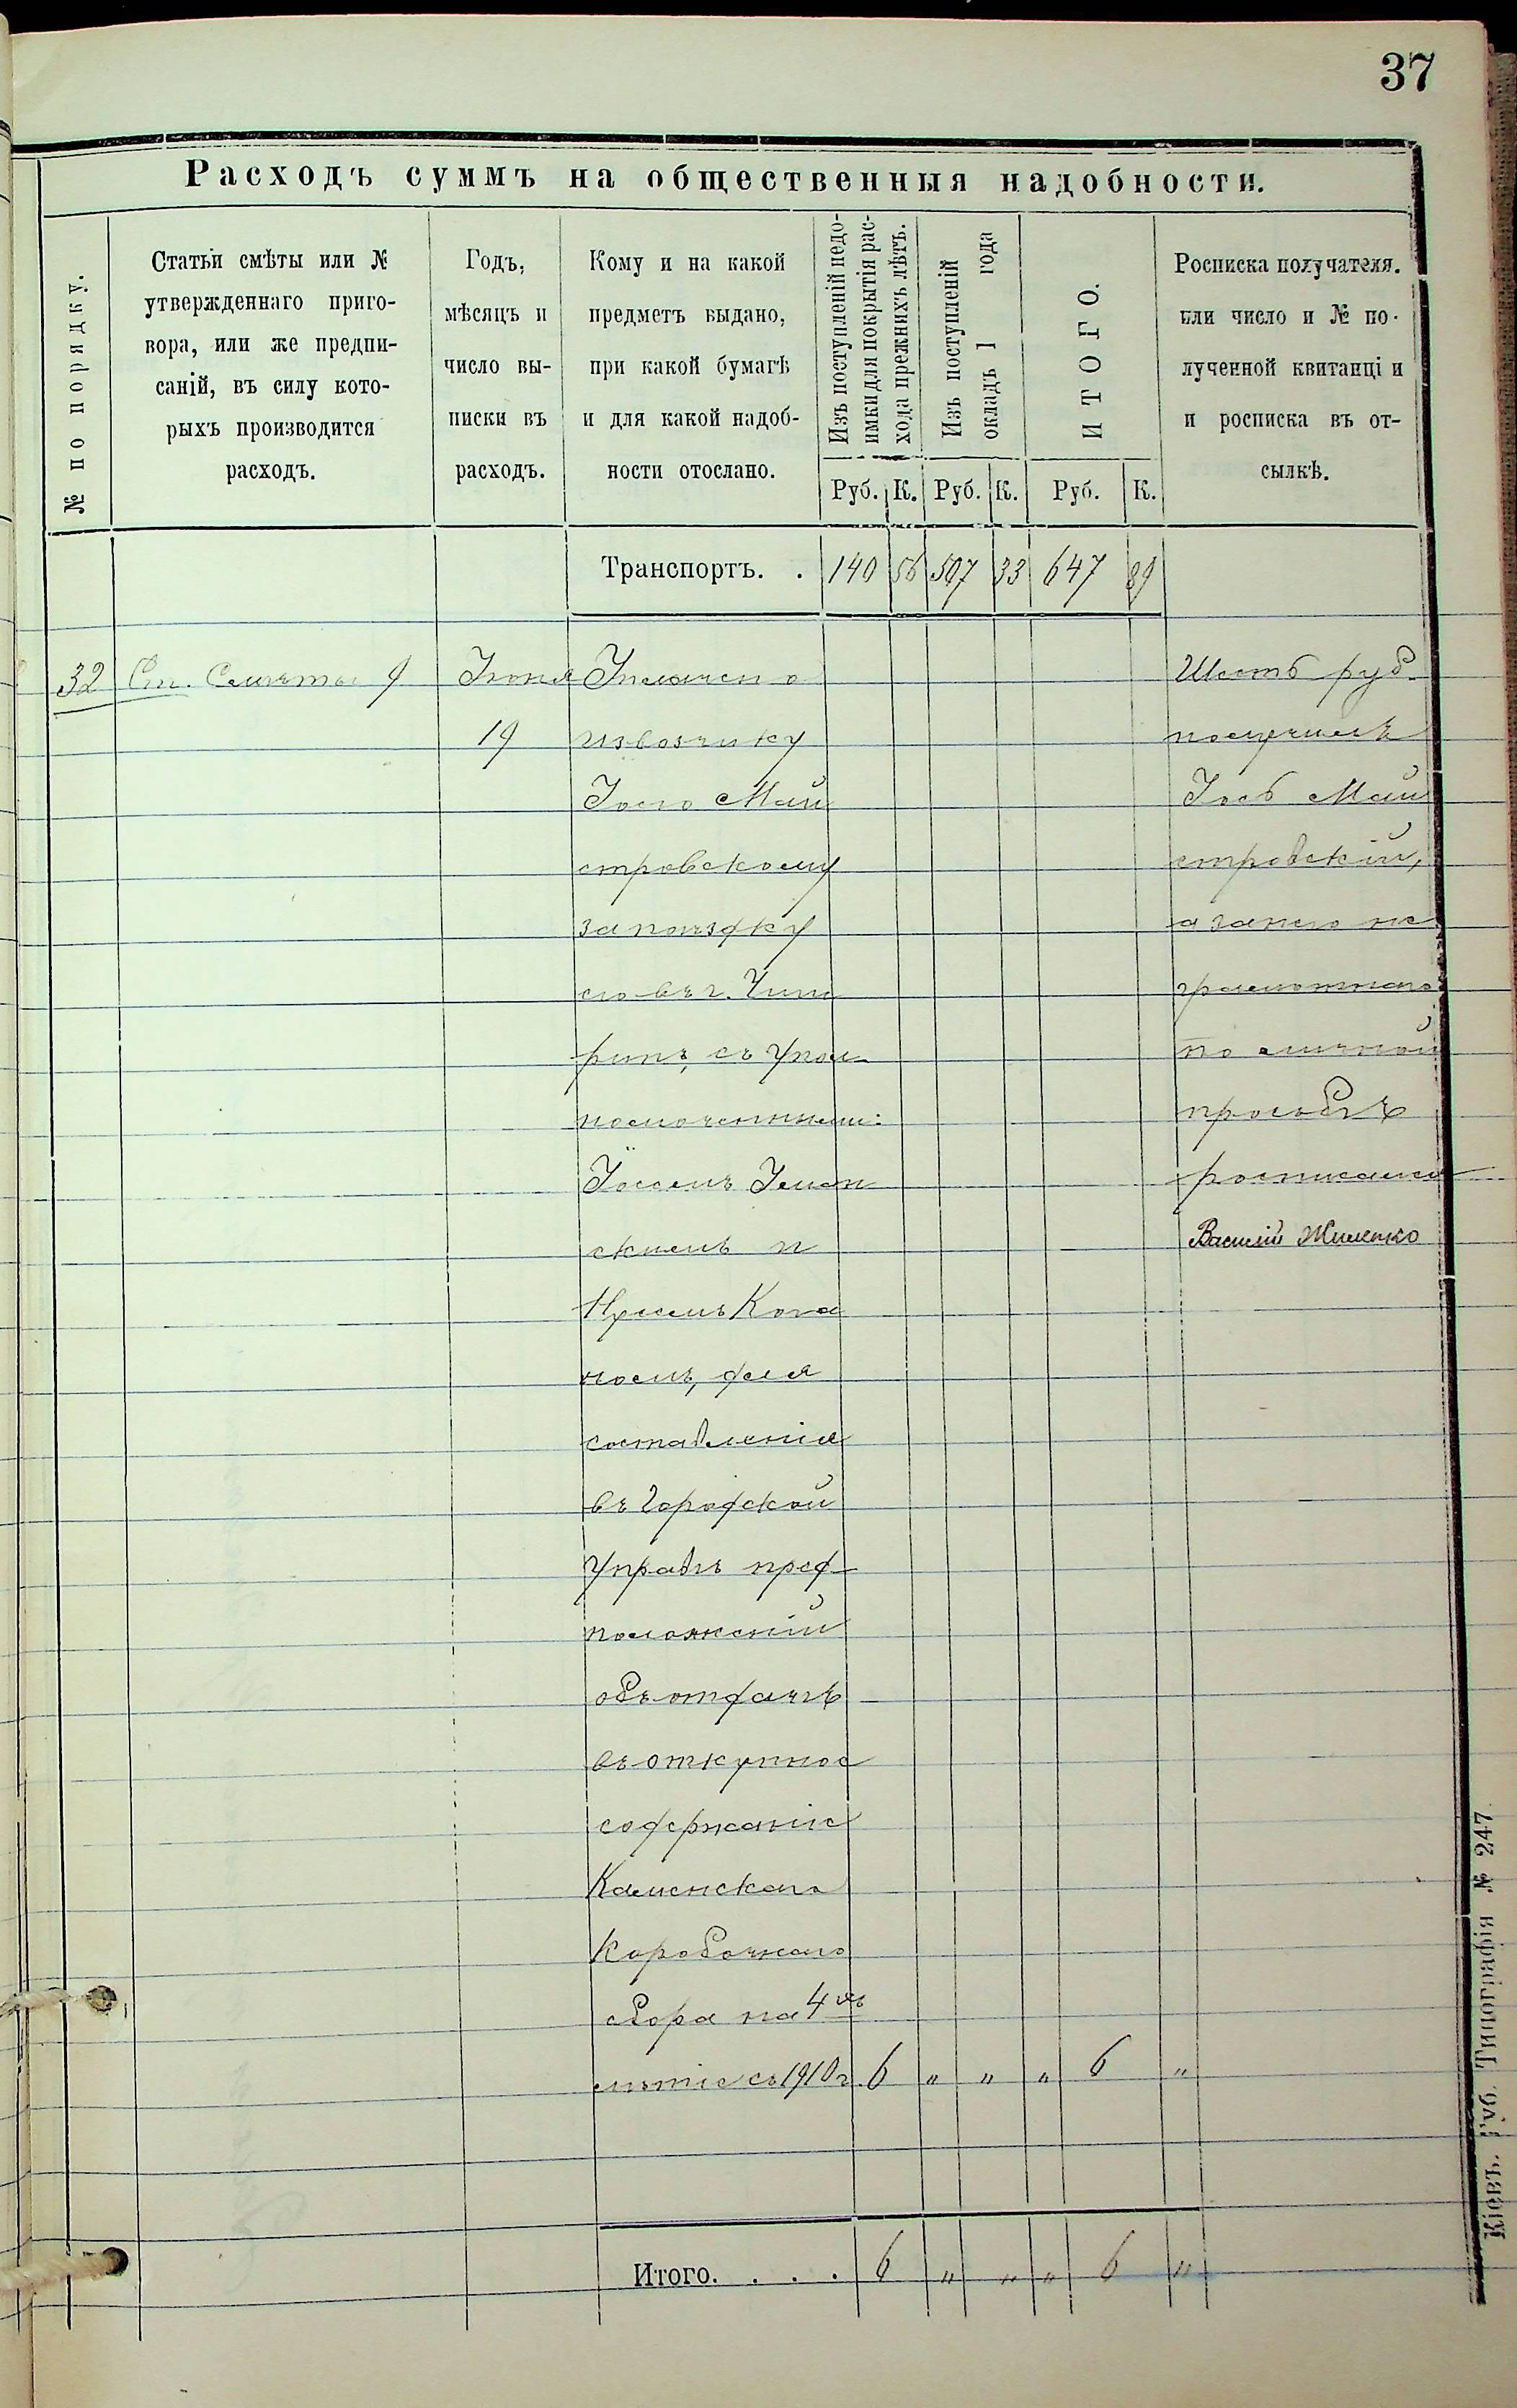 37
Расходъ суммъ на общественныя надобности.
№ по порядку.
Статьи смѣты или №
утвержденнаго приго-
вора, или же предпи-
саній, въ силу кото-
рыхъ производится
расходъ.
Годъ,
мѣсяцъ и
число вы-
писки въ
расходъ.
Кому и на какой
предметъ выдано,
при какой бумагѣ
и для какой надоб-
ности отослано.
Изъ поступленій недо-
имки для покрытія рас-
хода прежнихъ лѣтъ.
Изъ поступленій
окладъ 1 года
ИТОГО.
Руб. К. Руб. К. Руб. К.
Росписка получателя.
или число и № по-
лученной квитанціи
и росписка въ от-
сылкѣ.
Транспортъ. . 140 56 507 33 647 89
32 Ст. Смѣты 9 Іюня Уплачено
19 извозчику
Іосю Май
стровскому
за поѣздку
его въ г. Чиги
ринъ, съ упол
номоченными:
Іосемъ Уман
скимъ и
Нусемъ Кога
номъ, для
составленія
въ Городской
Управѣ пред
положеній
объ отдачѣ
въ откупное
содержаніе
Каменскаго
Коробочнаго
сбора на 4 хъ
лѣтіе съ 1910 г. 6 „ „ „ 6 „
Шесть руб.
получилъ
Іось Май
стровскій,
а за него не
грамотнаго
по личной
просьбѣ
росписался
Василій
Итого. . . . 6 „ „ „ 6 „
Кіевъ. Губ. Типографія № 247